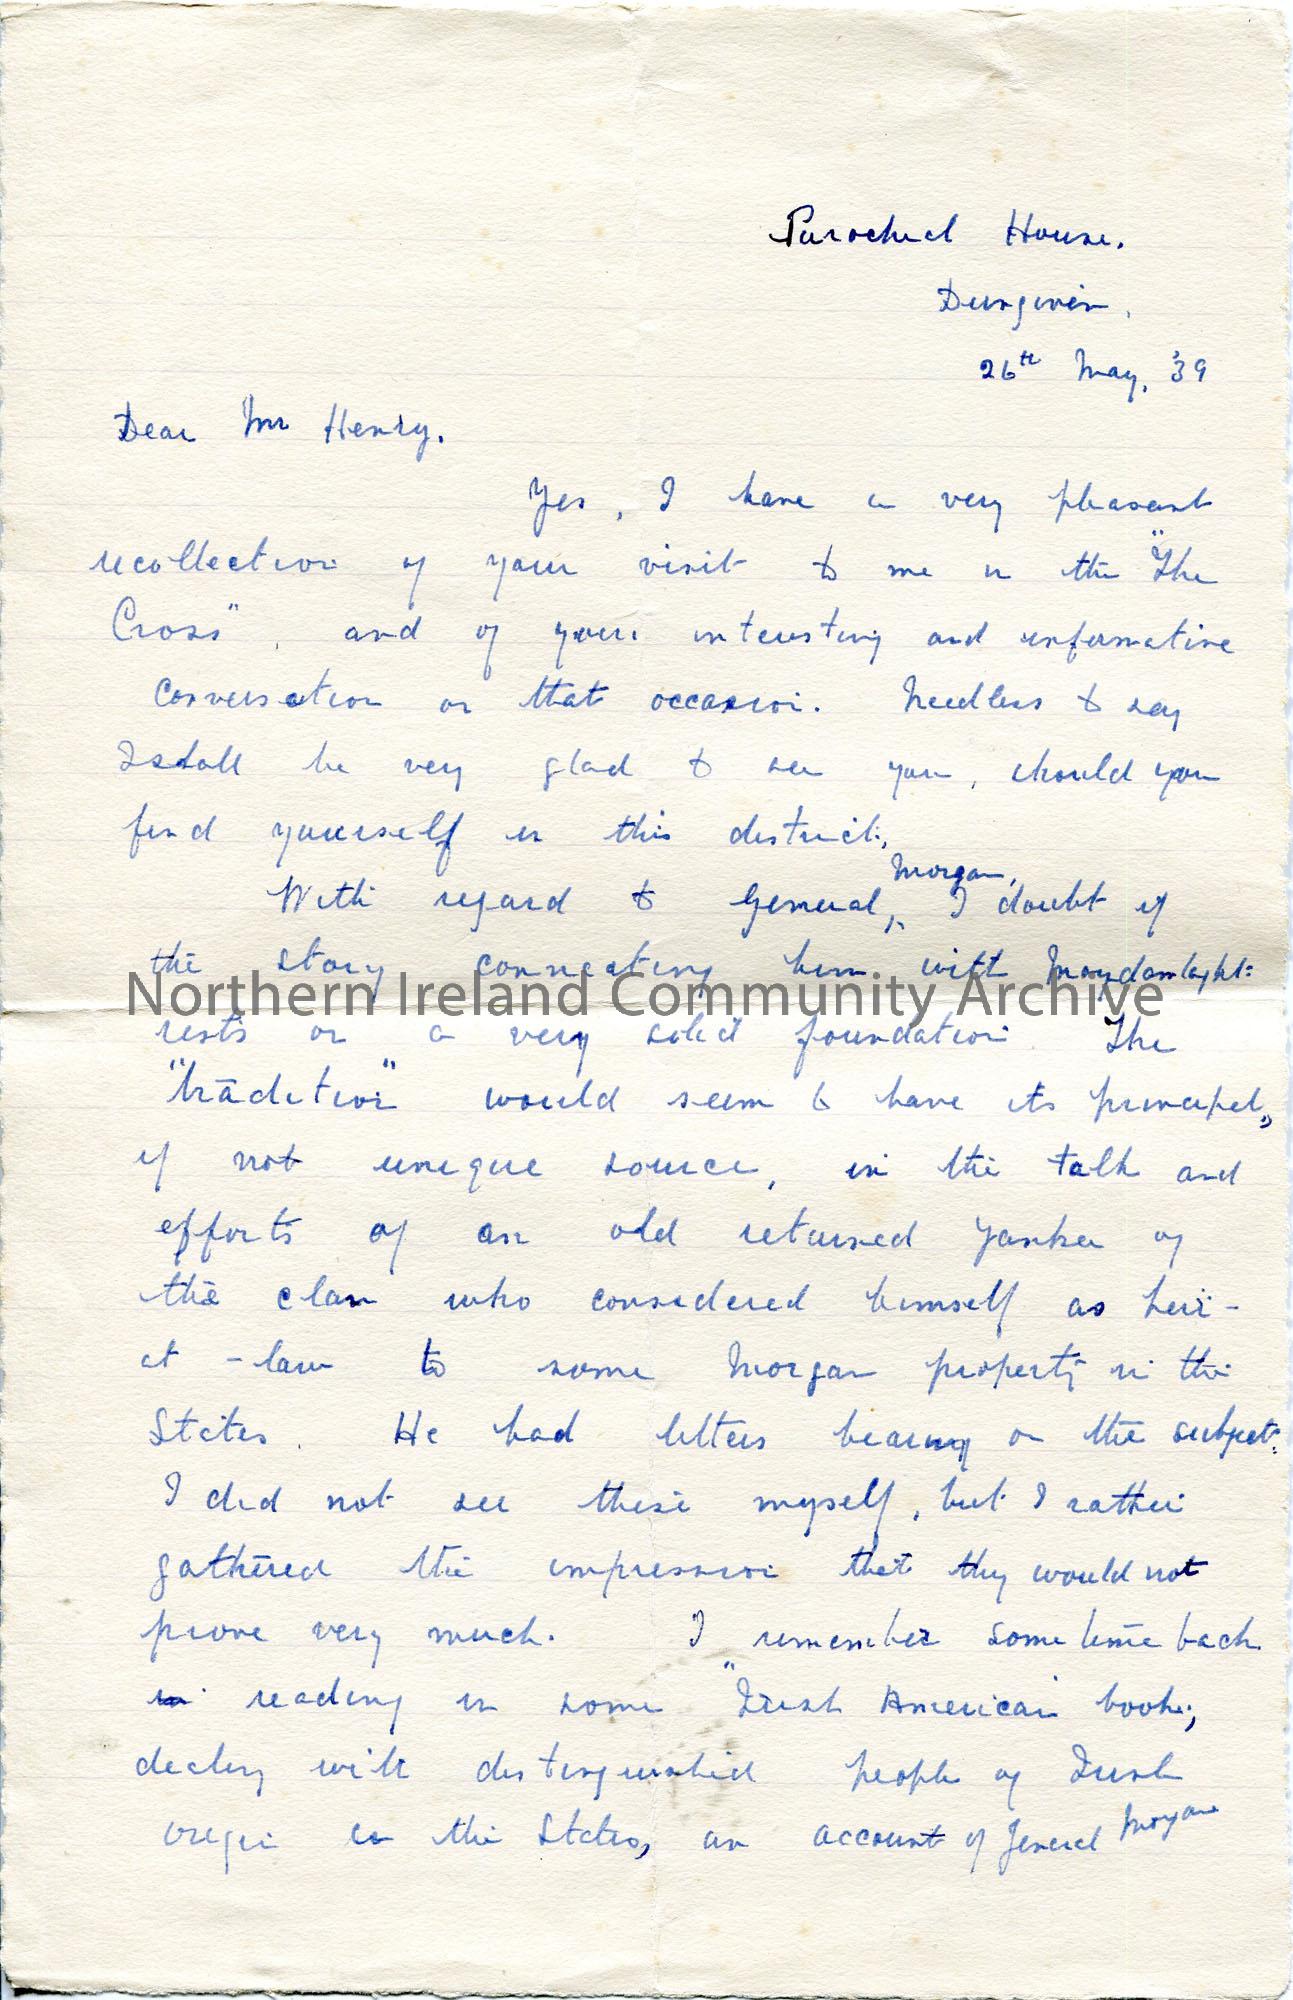 Parochial House.
Dungiven,
26th May, '39
Dear Mr Henry.
Yes, I have a very pleasant
recollection of your visit to me in the "The
Cross", and of your interesting and informative
conversation on that occasion. Needless to say
I shall be very glad to see you, should you
find yourself in this district.
With regard to General, Morgan, I doubt if
the story connecting him with Moydamlaght
Northern Ireland Community Archive
rests on a very solid foundation. The
"tradition" would seem to have its principal,
if not unique source, in the talk and
efforts of an old returned Yankee of
the clan who considered himself as heir-
at-law to some Morgan property in the
States. He had letters bearing on the subject.
I did not see these myself, but I rather
gathered the impression that they would not
prove very much. I remember some time back
reading in some "Irish American book,
dealing with distinguished people of Irish
origin in the States, an account of General Morgan